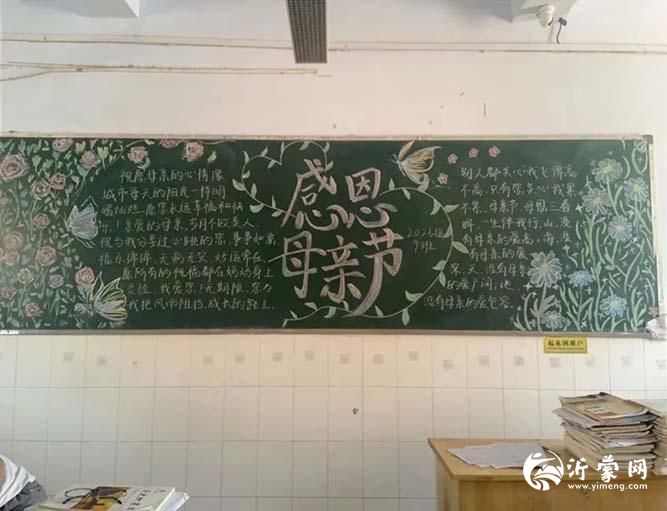 祝愿母亲的心情像
城市每天的阳光一样明
媚灿烂。愿您永远幸福和快
乐！亲爱的母亲，岁月不败美人。
祝与我分享过心跳的您，事事如
指示绵绵，无病无灾，好运常在
愿所有的祝福都在妈妈身上
灵验。我爱您！无期限。您为
我把风雨阻挡，成长的路上。
感恩
母亲节
9班
别人都关心我飞得高
不高，只有您关心我累
不累。母亲节，母恩三春
晖，一生伴我行，山，没
有母亲的爱高；海，没
有母亲的爱
深，天，没有母亲
的爱广阔；地，
没有母亲的爱包容。
起床困难户
沂蒙网
www.yimeng.com